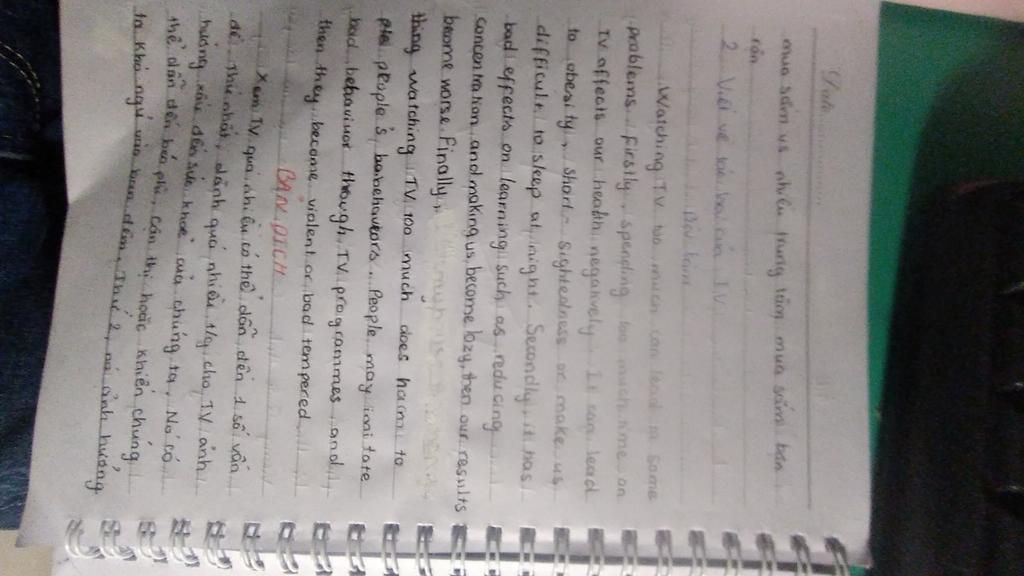 Date
mua sắm vs nhiều trung tâm mua sắm bận
rộn
2. Viết về tác hại của TV
Bài làm
Watching TV too much can lead to some
problems. Firstly, spending too much time on
TV affects our health negatively. It can lead
to obesity, short-sightedness or make us
difficult to sleep at night. Secondly, it has
bad effects on learning such as reducing
concentration and making us become lazy, then our results
become worse. Finally,
thing watching TV too much does harm to
people's behaviors. People may imitate
bad behavivor though TV programmes and
then they become violent or bad tempered
BẢN DỊCH
Xem TV quá nhiều có thể dẫn đến 1 số vấn
đề. Thứ nhất, dành quá nhiều t/g cho TV ảnh
hưởng xấu đến sức khoẻ của chúng ta. Nó có
thể dẫn đến béo phì, cận thị hoặc khiến chúng
ta khó ngủ vào ban đêm. Thứ 2, nó ảnh hưởng